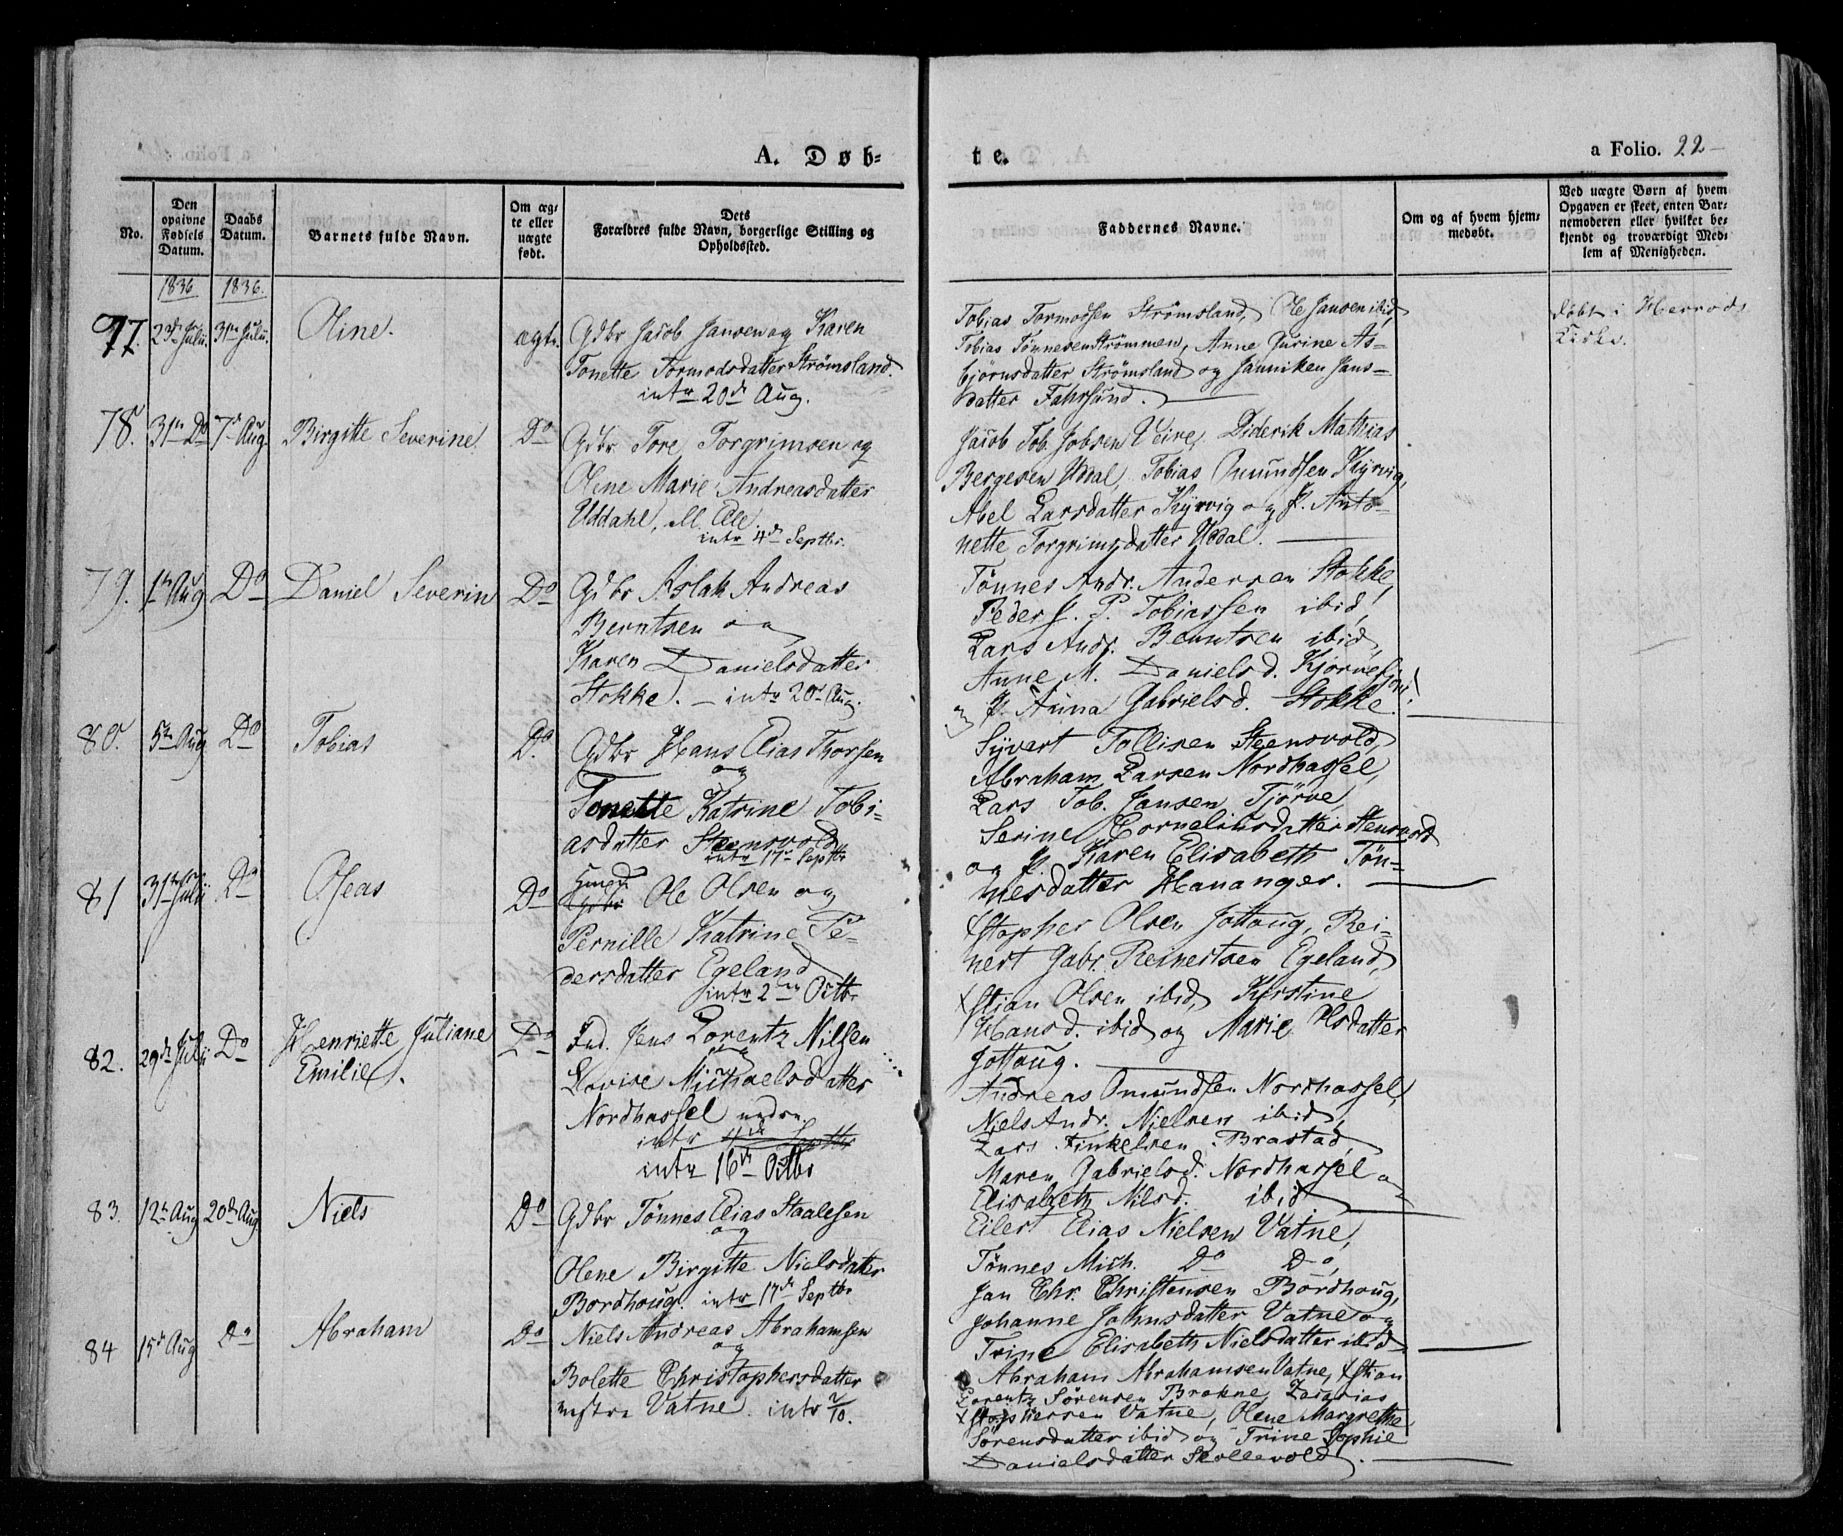 A. Døb-
te.
a Folio. 22
No.
Den opgivne Fødsels Datum.
Daabs Datum.
Barnets fulde Navn.
Om ægte eller uægte født.
Dets Forældres fulde Navn, borgerlige Stilling og Opholdssted.
Faddernes Navne.
Om og af hvem hjemmedøbt.
Ved uægte Børn af hvem Opgaven er skeet, enten Barnemoderen eller hvilket bekjendt og troværdigt Medlem af Menigheden.
1836 1836.
77. 23d Julii. 31te Julii. Oline. ægte.
Gdbr Jacob Jansen og Karen
Tonette Tormodsdatter Strömsland.
intr 20d Aug.
Tobias Tormodsen Strömsland, Ole Jansen ibid,
Tobias Tönnesen Strömmen, Anne Gurine As-
björnsdatter Strömsland og Janniken Jans-
datter Fahrsund.
döbt i Herrods
Kirke.
78. 31te Do 7d Aug. Birgitte Severine Do
Gdbr. Tore Torgrimsen og
Olene Marie Andreasdatter
Uddahl,
intr 4d Septbr.
Jacob Tob. Jobsen Veire, Diderik Mathias
Bergesen Uddal, Tobias Omundsen Kjrvig,
Abel Larsdatter Kjrvig og P. Anto-
nette Torgrimsdatter Uddal.
79. 1te Aug Do Daniel Severin Do
Gdbr Aslak Andreas
Berntsen og
Karen Danielsdatter
Stokke. – intr 20d Aug.
Tönnes Andr. Andersen Stokke,
Peder J. P. Tobiassen ibid,
Lars Andr. Berntsen ibid,
Anne M. Danielsd. Kjörrefjord
og P. Anna Gabrielsd. Stokke.
80. 5te Aug Do Tobias Do
Gdbr Hans Elias Thorsen
og
Tonette Katrine Tobi-
asdatter Steensvold
intr 17d Septbr
Syvert Tollisen Steensvold,
Abraham Larsen Nordhassel,
Lars Tob. Jansen Tjörve,
Serine Corneliusdatter Stensvold
og P. Karen Elisabeth Tön-
nesdatter Hananger.
81 31te Julii Do Oseas Do
Huusmd
Gdbr Ole Olsen og
Pernille Katrine Pe-
dersdatter Egeland
intr 2den Octbr
Xstopher Olsen Jottoug, Rei-
nert Gabr. Reinertsen Egeland,
Xstian Olsen ibid, Kirstine
Hansd. ibid og Marie Olsdatter
Jottoug.
82. 29de Julii Do Henriette Juliane Do
Emilie.
Ind. Jens Lorentz Nilsen
og
Lovise Michaelsdatter
Nordhassel nedre
intr 4de Septbr
intr 16de Octbr
Andreas Omundsen Nordhassel,
Niels Andr. Nielsen ibid,
Lars Tinkelsen Brastad,
Maren Gabrielsd. Nordhassel og
Elisabeth Nilsd. ibid
83. 12te Aug 20de Aug. Niels Do
Gdbr Tönnes Elias Staalesen
og
Olene Birgitte Nielsdatter
Bordhoug. intr 17d Septbr
Eilert Elias Nielsen Vatne,
Tönnes Mich. Do Do,
Jan Chr. Christensen Bordhoug,
Johanne Johnsdatter Vatne og
Trine Elisabeth Nielsdatter ibid
84 15d Aug Do Abraham Do
Niels Andreas Abrahamsen
og
Bolette Christophersdatter
vestre Vatne. intr 2/10.
Abraham Abrahamsen Vatne, Xstian
Lorentz Sörensen Brekne, Zacarias
Xstophersen Vatne, Olene Margrethe
Sörensdatter ibid og Trine Sophie
Danielsdatter Skollevold.